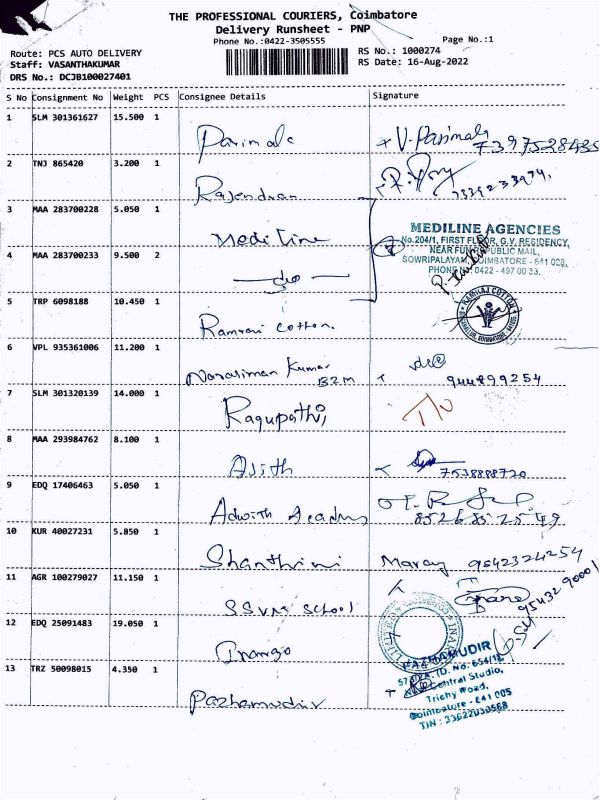 THE PROFESSIONAL COURIERS, Coimbatore
Delivery Runsheet - PNP
Phone No.:0422-3505555
Page No.:1
Route: PCS AUTO DELIVERY
Staff: VASANTHAKUMAR
DRS No.: DCJB100027401
RS No.: 1000274
RS Date: 16-Aug-2022
S No Consignment No Weight PCS Consignee Details Signature
1 SLM 301361627 15.500 1 Parimala V. Parimala 7397528485
2 TNJ 865420 3.200 1 Rajendran
3 MAA 283700228 5.050 1 Mediline
MEDILINE AGENCIES
No.204/1, FIRST FLOOR, G.V. RESIDENCY,
NEAR FUN REPUBLIC MAIL,
SOWRIPALAYAM, COIMBATORE - 641 028.
PHONE NO: 0422 - 497 00 33.
4 MAA 283700233 9.500 2 do
5 TRP 6098188 10.450 1 Ramraj Cotton.
RAMRAJ COTTON
6 VPL 935361006 11.200 1 Narasiman Kumar
B2M 944899254
7 SLM 301320139 14.000 1 Ragupathi
8 MAA 293984762 8.100 1 Ajith 7538888720
9 EDQ 17406463 5.050 1 Adwith Academy 8526852549
10 KUR 40027231 5.850 1 Shanthini 9542324254
11 AGR 100279027 11.150 1 SSVM School
12 EDQ 25091483 19.050 1
13 TRZ 50098015 4.350 1 Pazhamudir
PAZHAMUDIR
Central Studio,
Trichy Road,
Coimbatore - 641 005